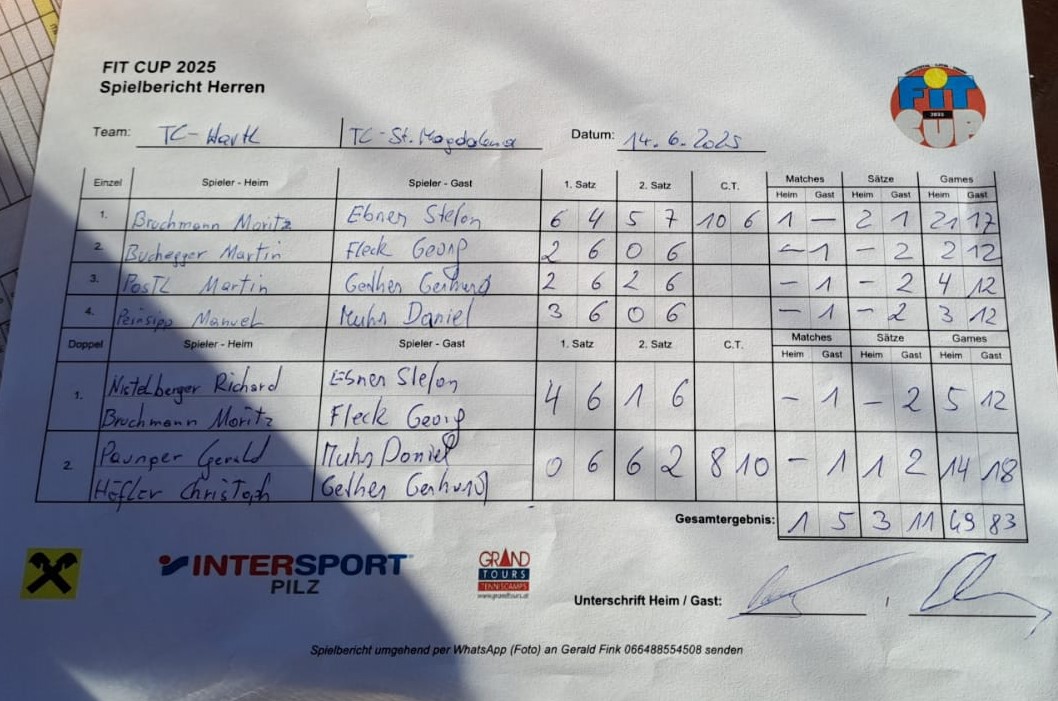 FIT CUP 2025
Spielbericht Herren
FIT
2025
CUP
Team: TC-Hartl TC-St. Magdalena Datum: 14.6.2025
Einzel Spieler - Heim Spieler - Gast 1. Satz 2. Satz C.T. Matches Sätze Games
Heim Gast Heim Gast Heim Gast
1. Bruchmann Moritz Ebner Stefan 6 4 5 7 10 6 1 – 2 1 21 17
2. Buchegger Martin Fleck Georg 2 6 0 6 – 1 – 2 2 12
3. Postl Martin Gerhard 2 6 2 6 – 1 – 2 4 12
4. Peinsipp Manuel Muhr Daniel 3 6 0 6 – 1 – 2 3 12
Doppel Spieler - Heim Spieler - Gast 1. Satz 2. Satz C.T. Matches Sätze Games
Heim Gast Heim Gast Heim Gast
Nistelberger Richard Ebner Stefan
1. 4 6 1 6 – 1 – 2 5 12
Bruchmann Moritz Fleck Georg
Gerald Muhr Daniel
2. 0 6 6 2 8 10 – 1 1 2 14 18
Höfler Christoph Gerhard
Gesamtergebnis: 1 5 3 11 49 83
INTERSPORT
PILZ
GRAND
TOURS
TENNISCAMPS
www.grandtours.at
Unterschrift Heim / Gast: /
Spielbericht umgehend per WhatsApp (Foto) an Gerald Fink 066488554508 senden